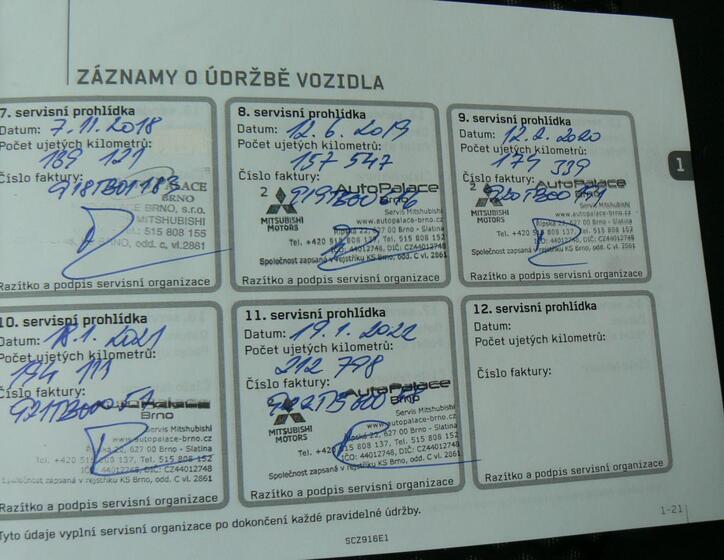 ZÁZNAMY O ÚDRŽBĚ VOZIDLA
7. servisní prohlídka
Datum: 7.11.2018
Počet ujetých kilometrů:
139 121
Číslo faktury:
PALACE
BRNO
BRNO, s.r.o.
MITSUBISHI
tel.: 515 808 155
BRNO, odd. C, vl.2861
Razítko a podpis servisní organizace
8. servisní prohlídka
Datum: 12.6.2019
Počet ujetých kilometrů:
157 547
Číslo faktury:
2
AutoPalace
Brno
MITSUBISHI
MOTORS
Servis Mitshubishi
www.autopalace-brno.cz
Řipská 22, 627 00 Brno - Slatina
Tel. +420 515 808 137, Tel. 515 808 152
IČO: 44012748, DIČ: CZ44012748
Společnost zapsaná v rejstříku KS Brno, odd. C vl. 2861
Razítko a podpis servisní organizace
9. servisní prohlídka
Datum: 12.2.2020
Počet ujetých kilometrů:
179 339
Číslo faktury:
2
AutoPalace
Brno
MITSUBISHI
MOTORS
Servis Mitshubishi
www.autopalace-brno.cz
Řipská 22, 627 00 Brno - Slatina
Tel. +420 515 808 137, Tel. 515 808 152
IČO: 44012748, DIČ: CZ44012748
Společnost zapsaná v rejstříku KS Brno, odd. C vl. 2861
Razítko a podpis servisní organizace
1
10. servisní prohlídka
Datum: 18.1.2021
Počet ujetých kilometrů:
194 111
Číslo faktury:
AutoPalace
Brno
Servis Mitshubishi
www.autopalace-brno.cz
Řipská 22, 627 00 Brno - Slatina
Tel. +420 515 808 137, Tel. 515 808 152
IČO: 44012748, DIČ: CZ44012748
Společnost zapsaná v rejstříku KS Brno, odd. C vl. 2861
Razítko a podpis servisní organizace
11. servisní prohlídka
Datum: 19.1.2022
Počet ujetých kilometrů:
212 798
Číslo faktury:
AutoPalace
Brno
MITSUBISHI
MOTORS
Servis Mitshubishi
www.autopalace-brno.cz
Řipská 22, 627 00 Brno - Slatina
Tel. +420 515 808 137, Tel. 515 808 152
IČO: 44012748, DIČ: CZ44012748
Společnost zapsaná v rejstříku KS Brno, odd. C vl. 2861
Razítko a podpis servisní organizace
12. servisní prohlídka
Datum:
Počet ujetých kilometrů:
Číslo faktury:
Razítko a podpis servisní organizace
Tyto údaje vyplní servisní organizace po dokončení každé pravidelné údržby.
1-21
SCZ916E1